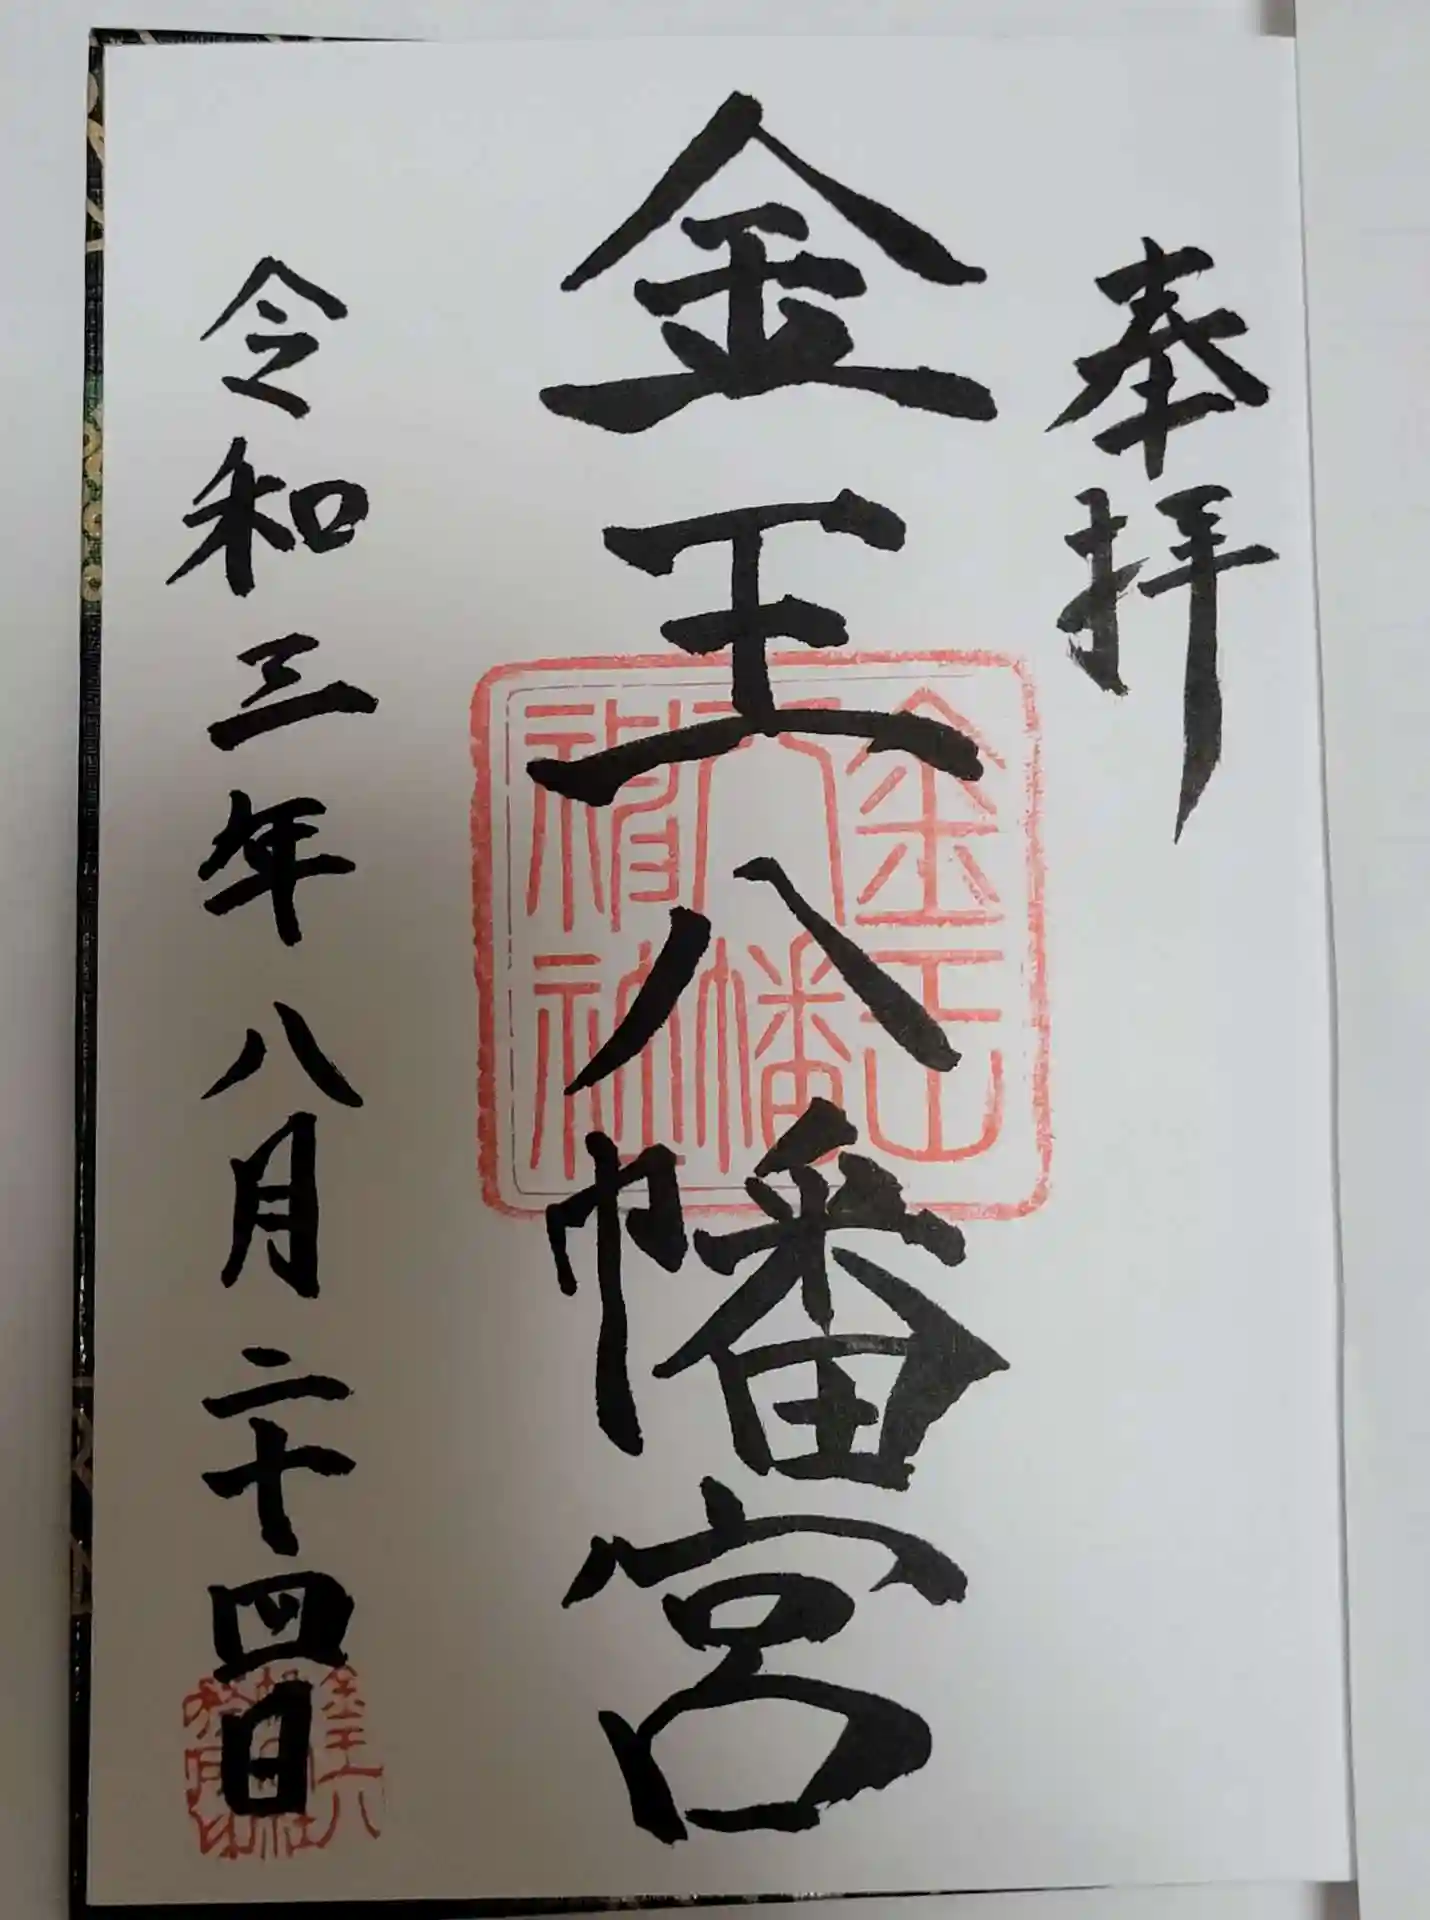 奉拝
金王八幡宮
令和三年八月二十四日
金王
八幡
神社